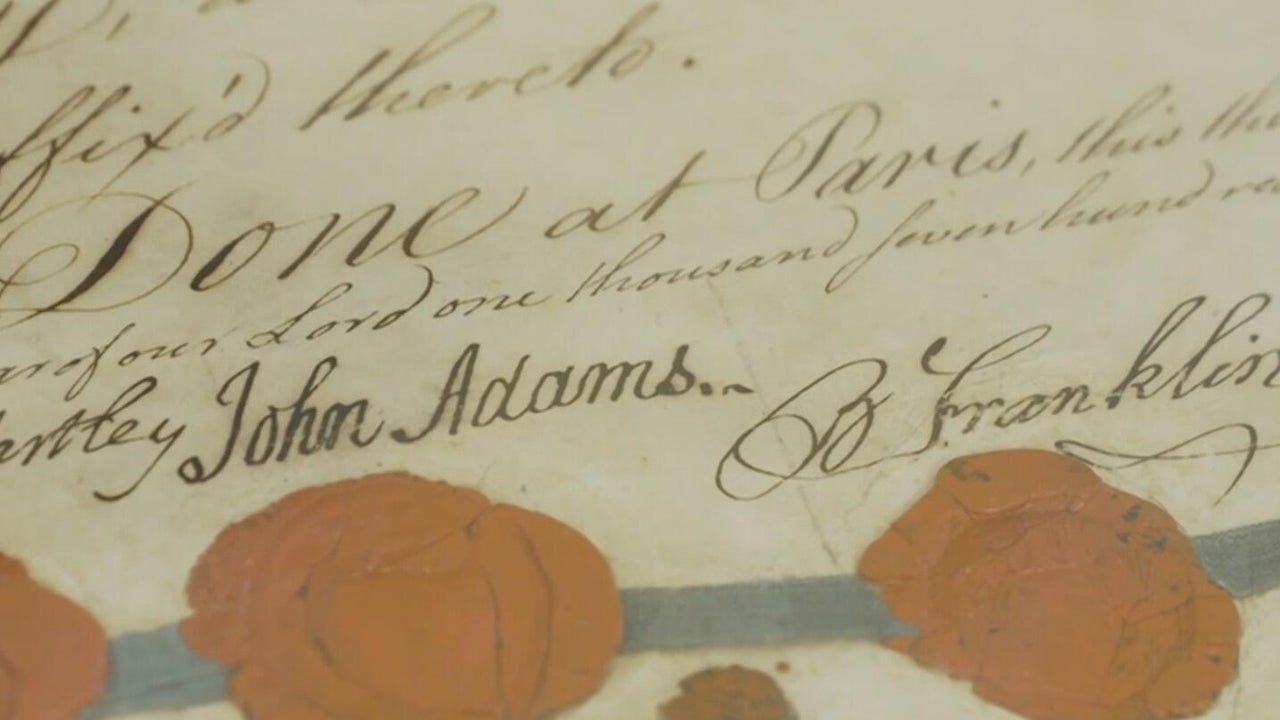 ffix'd thereto.
Done at Paris, this
of our Lord one thousand seven hund
John Adams. B Franklin